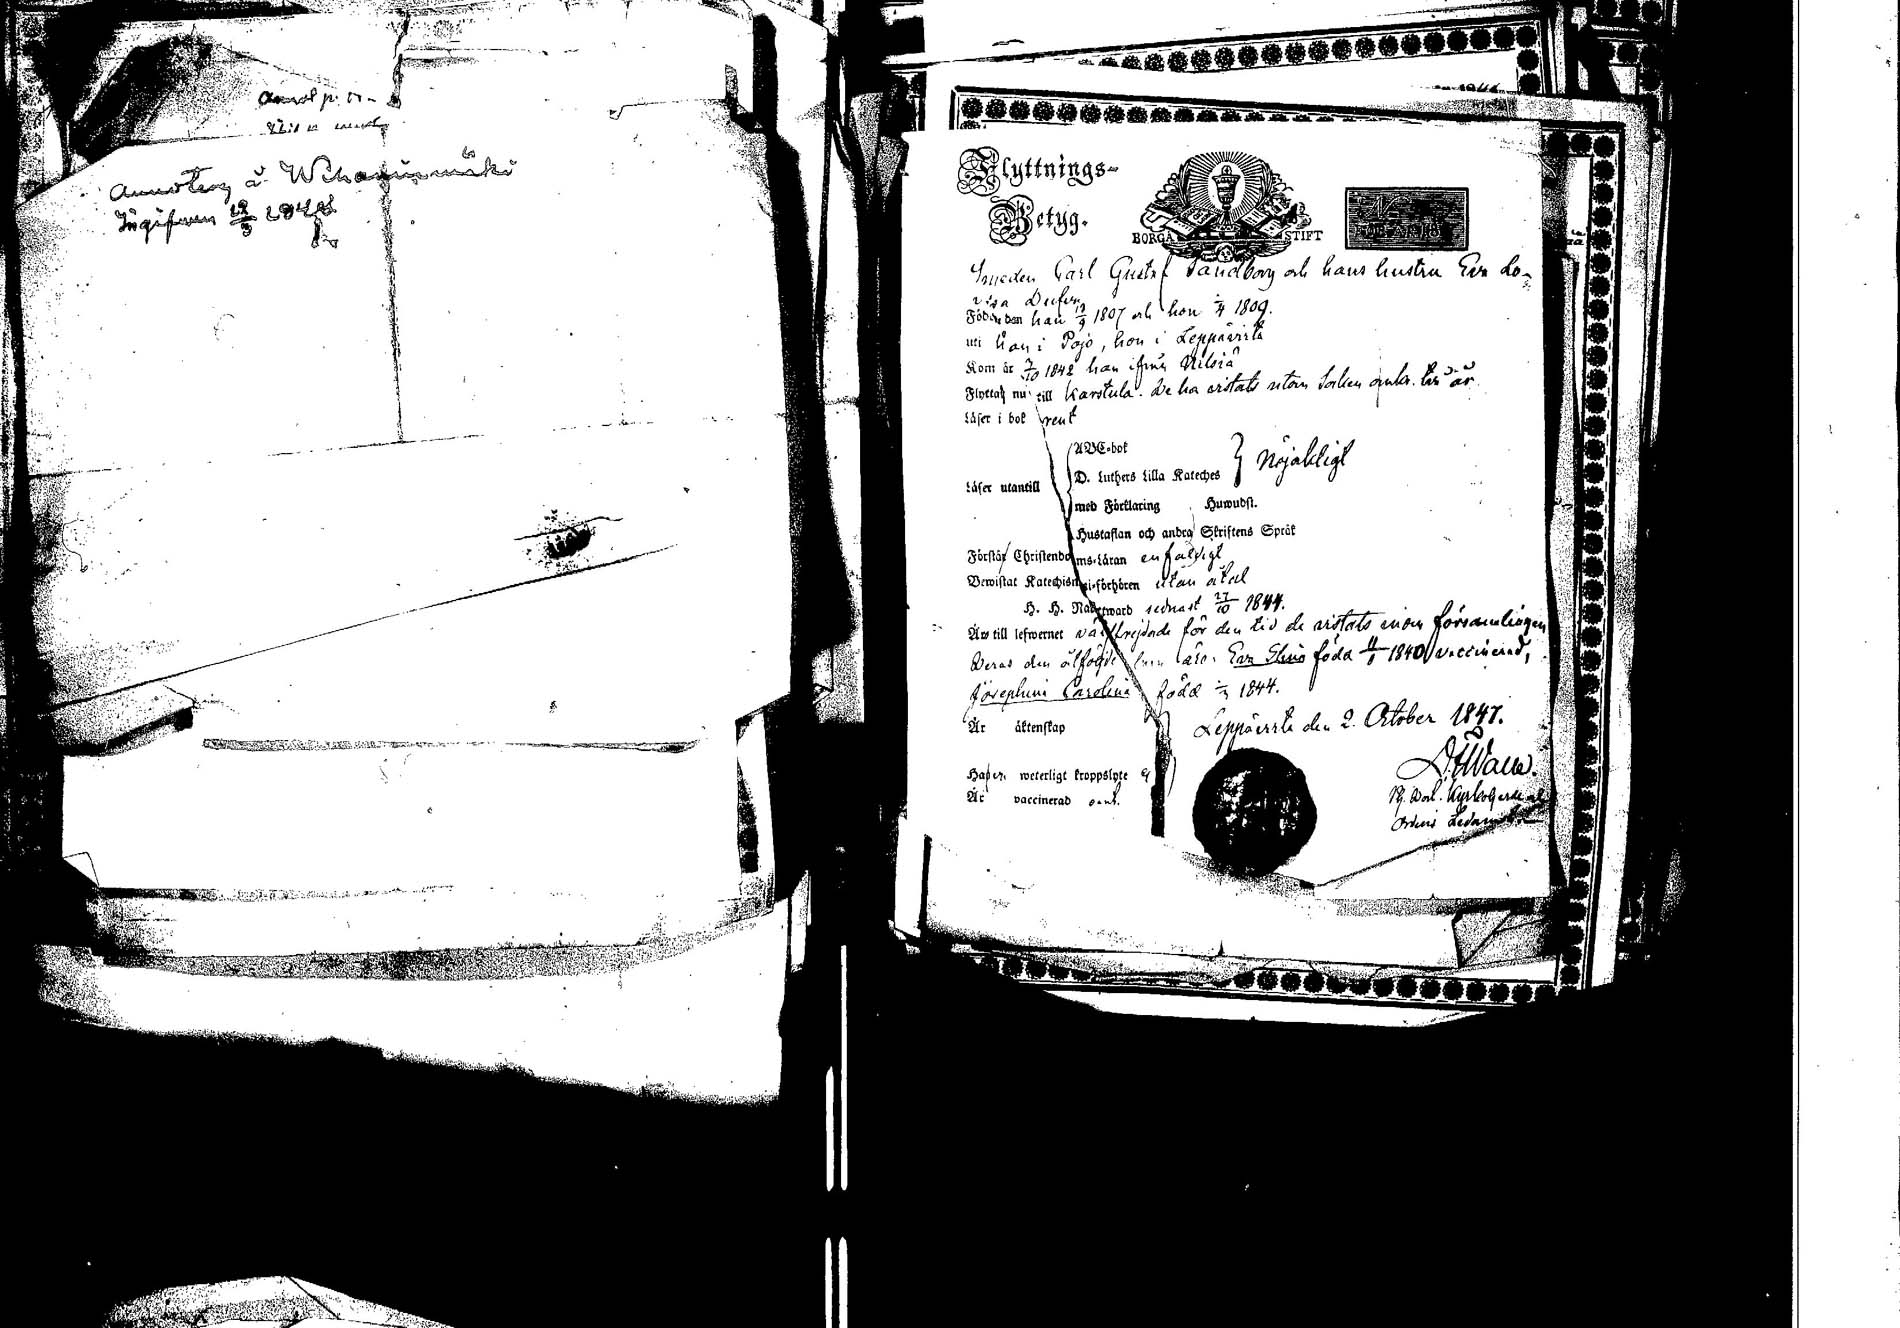 Annotery å Wihaninmäki
Ingifven 12/3 1848
Flyttnings-
Betyg.
BORGÅ STIFT
Smeden Carl Gustaf Sandborg och hans hustru Eva Lo-
visa
Född den han 12/9 1807 och hon 1809.
uti han i Pojo, hon i Leppävirta
Kom år 7/10 1842 han ifrån Nilsiä
Flyttar nu till Karstula. De ha vistats utom Socken omkr. tre år
Läser i bok rent
ABC-bok
Läser utantill
D. Luthers Lilla Kateches } Nöjaktigt
med Förklaring Huwudst.
Hustaflan och andra Skriftens Språk
Förstår Christendoms-Läran enfaldigt
Bewistat Katechismi-förhören utan åtal
H. H. Nattward sednast 27/10 1844.
Är till lefwernet välfrejdade för den tid de vistats inom församlingen
Deras dem åtföljde barn äro: Eva Stina född 1840, vaccinerad,
Josephina Carolina född 1844.
Är äktenskap
Leppävirta den 2. October 1847.
Hafver weterligt kroppslyte ej
Är vaccinerad